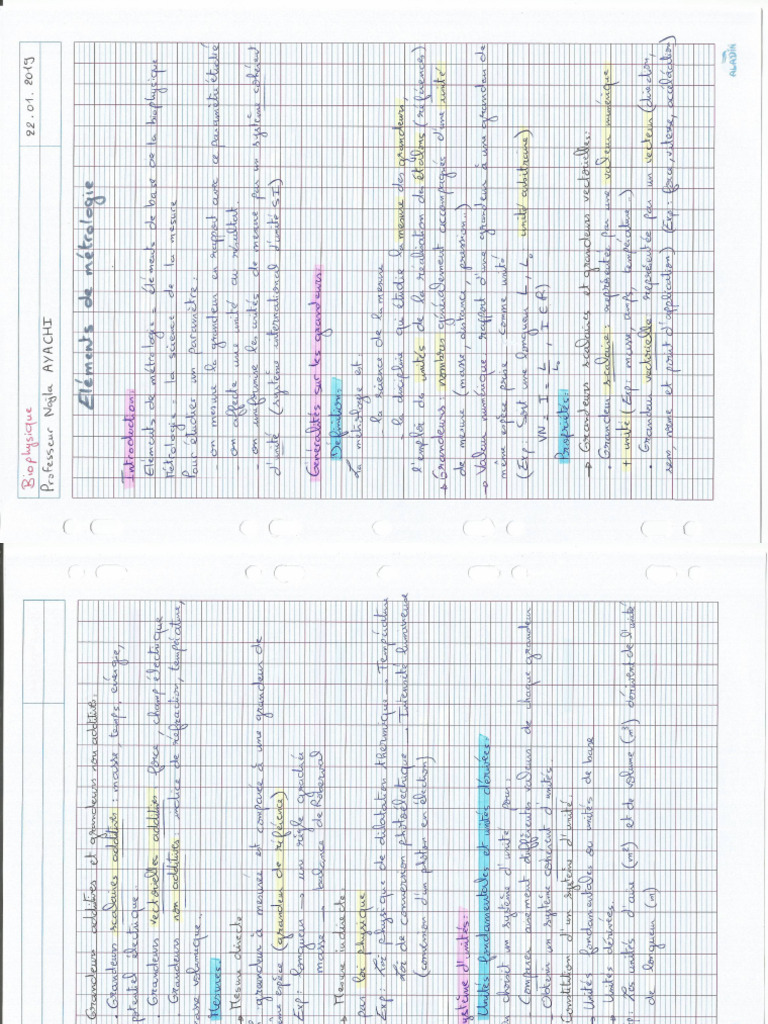 22.01.2019
Biophysique
Professeur Najla AYACHI
Eléments de métrologie
Introduction:
Eléments de métrologie = éléments de base de la biophysique
Métrologie = la science de la mesure
Pour étudier un paramètre:
- on mesure la grandeur en rapport avec ce paramètre étudié
- on affecte une unité au résultat.
- on uniforme les unités de mesure par un système cohérent
d'unité (système international d'unité SI)
Généralités sur les grandeurs:
Définition:
La métrologie est:
- la science de la mesure
- la discipline qui étudie la mesure des grandeurs,
l'emploi de unités de la réalisation des étalons (références)
→ Grandeurs: nombres généralement accompagnés d'une unité
de mesure (masse, distance, pression...)
→ Valeur numérique: rapport d'une grandeur à une grandeur de
même espèce prise comme unité
(Exp: Soit une longueur L, L₀ unité arbitraire)
VN = I = L/L₀, I ∈ R)
Propriétés:
→ Grandeurs scalaires et grandeurs vectorielles:
• Grandeur scalaire: représentée par une valeur numérique
+ unité (Exp: masse, temps, température...)
• Grandeur vectorielle représentée par un vecteur (direction,
sens, norme et point d'application) (Exp: force, vitesse, accélération)
ALADIN
Grandeurs additives et grandeurs non additives.
• Grandeurs scalaires additives: masse, temps, énergie,
potentiel électrique.
• Grandeurs vectorielles additives: force, champ électrique
Grandeurs non additives: indice de réfraction, température,
masse volumique...
Mesures:
→ Mesure directe:
grandeur à mesurée est comparée à une grandeur de
même espèce (grandeur de référence)
Exp: longueur → un règle gradué
masse → balance de Roberval
→ Mesure indirecte:
par loi physique
Exp: Loi physique de dilatation thermique → Température
Loi de conversion photoélectrique → Intensité lumineuse
(conversion d'un photon en électron)
système d'unités:
Unités fondamentales et unités dérivées:
On choisit un système d'unité pour:
- Comparer aisément différentes valeurs de chaque grandeur
- Obtenir un système cohérent d'unités
Constitution d'un système d'unité:
→ Unités fondamentales ou unités de base
→ Unités dérivées.
Exp: Les unités d'aire (m²) et de volume (m³) dérivent de l'unité
de longueur (m)